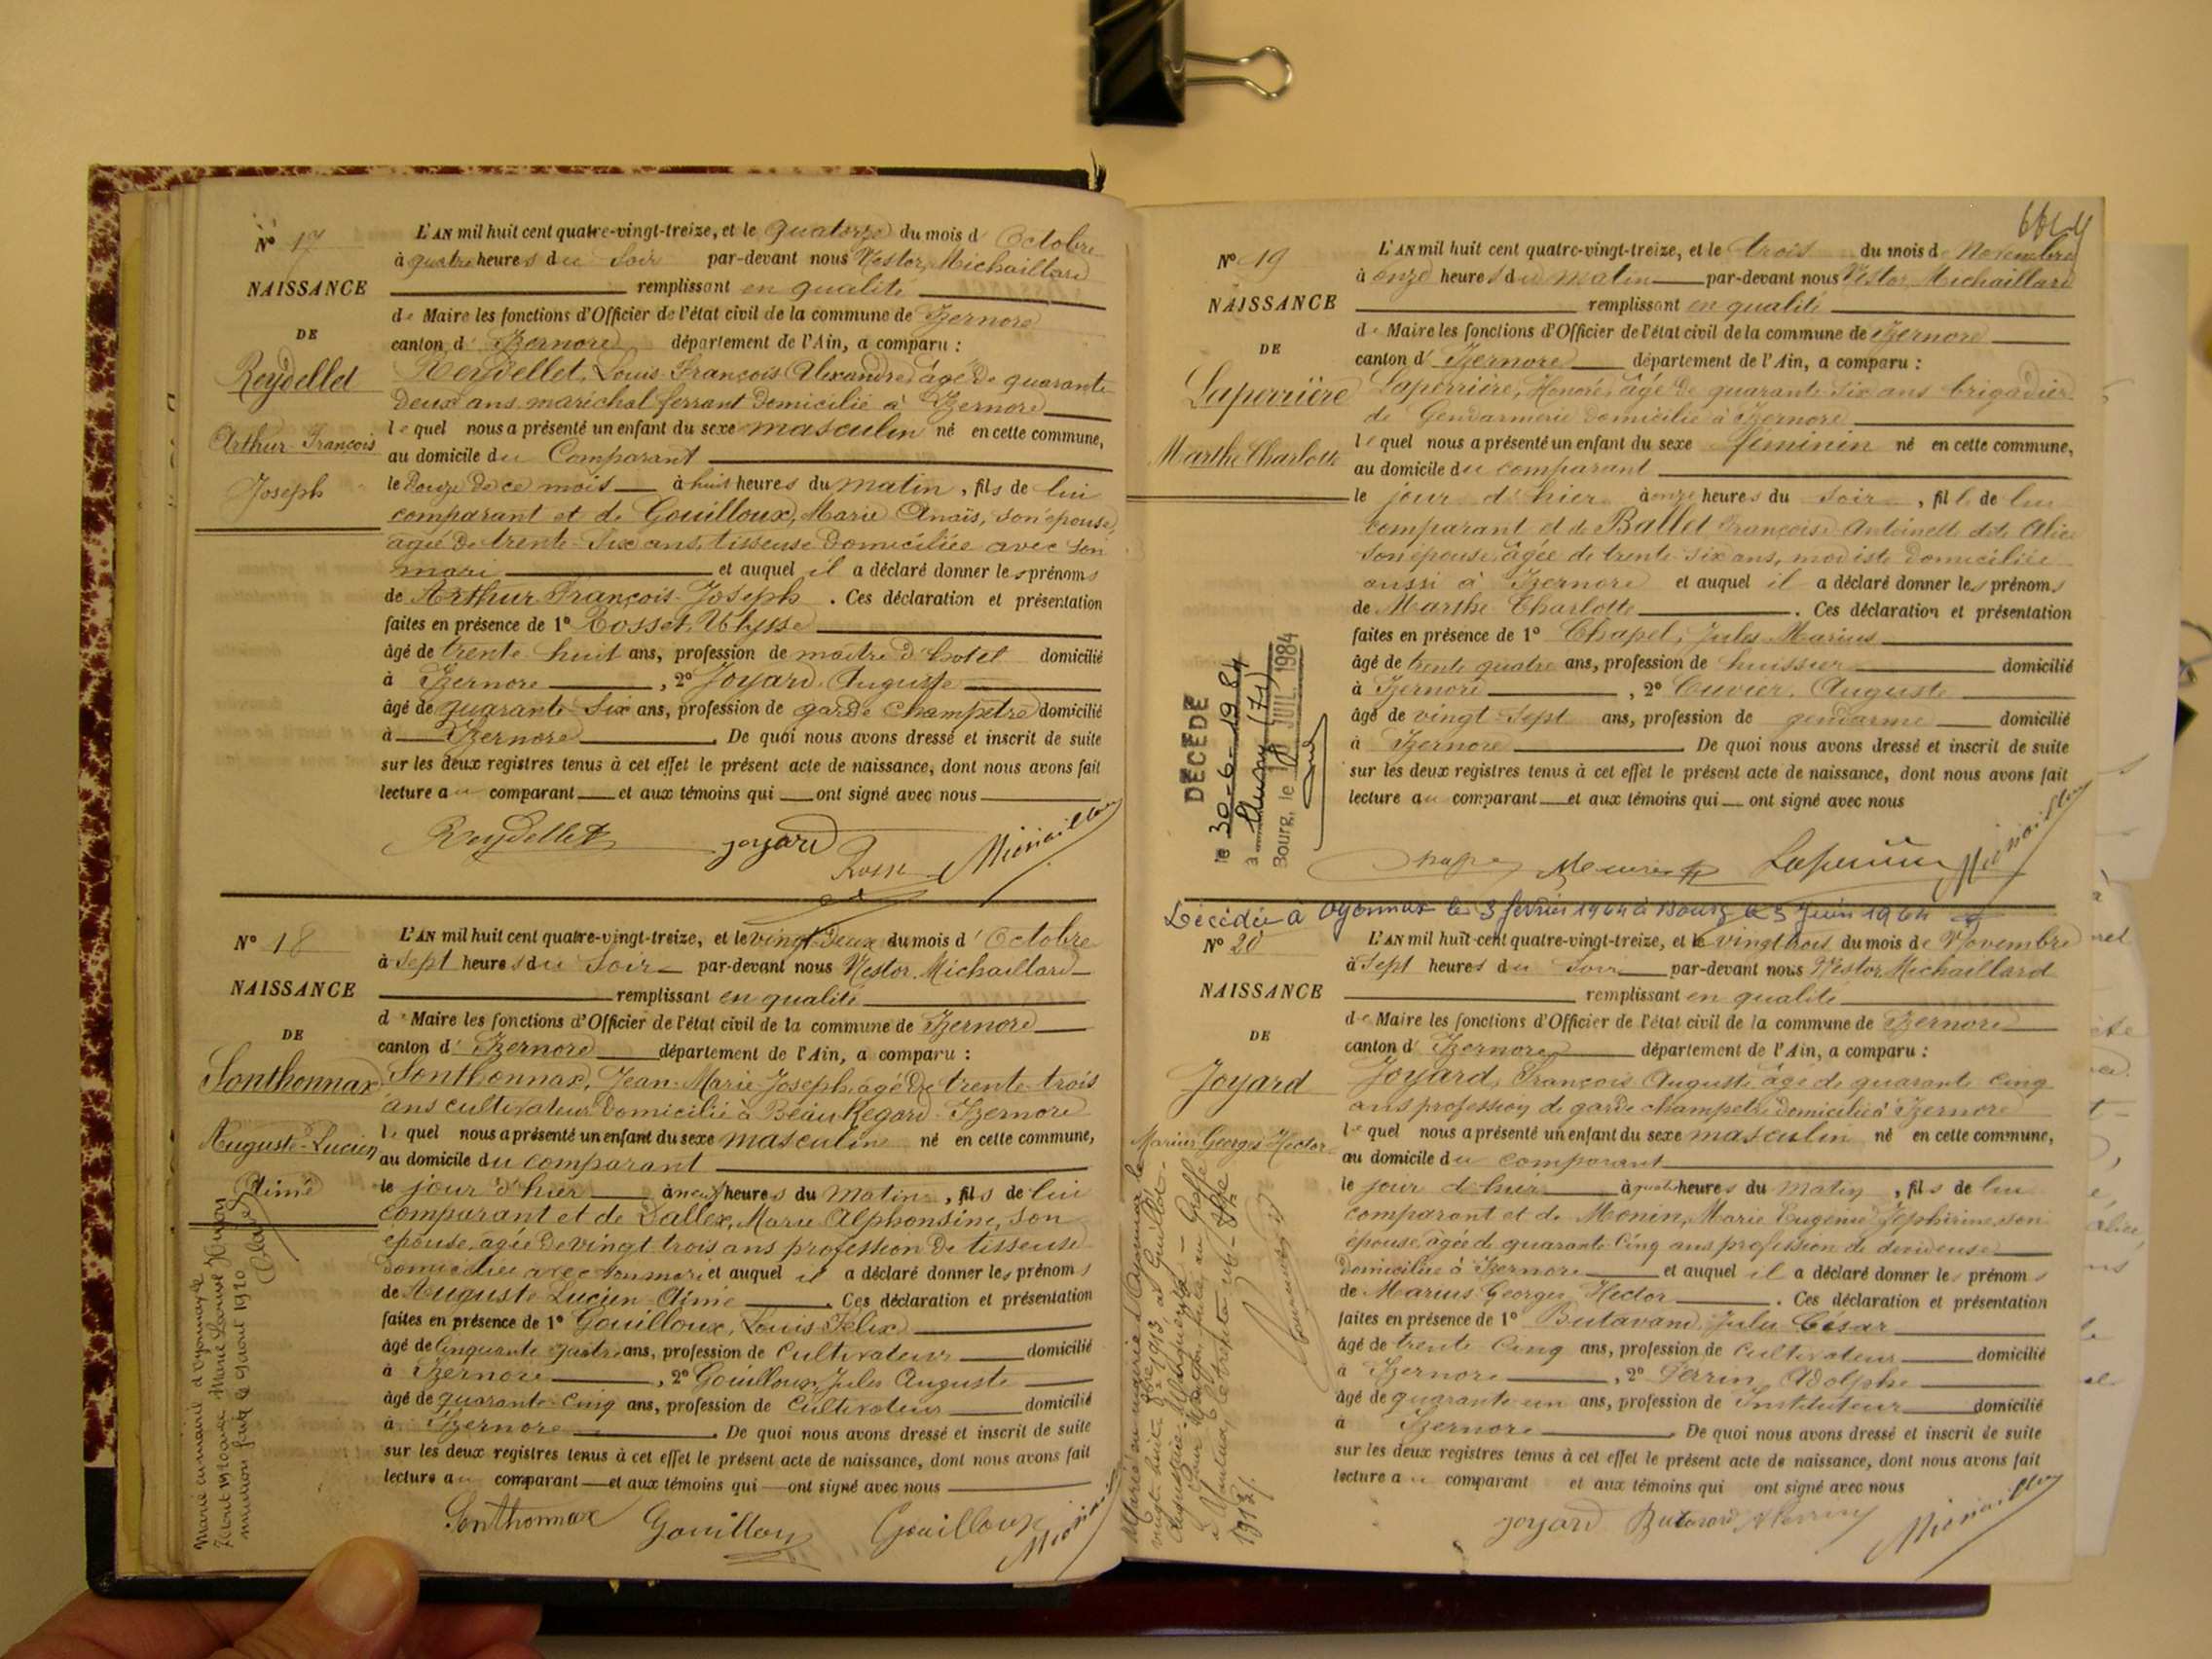 N° 17
NAISSANCE
DE
Reydellet
Arthur François
Joseph
L'AN mil huit cent quatre-vingt-treize, et le Quatorze du mois d'Octobre
à quatre heures du Soir par-devant nous Nestor, Michaillard
remplissant en qualité
de Maire les fonctions d'Officier de l'état civil de la commune de Izernore
canton d'Izernore département de l'Ain, a comparu :
Reydellet, Louis François Alexandre âgé de quarante
Deux ans, maréchal ferrant domicilié à Izernore
lequel nous a présenté un enfant du sexe masculin né en cette commune,
au domicile du Comparant
le Douze de ce mois à huit heures du matin, fils de lui
comparant et de Gouilloux, Marie Anaïs, son épouse,
agée de trente-Six ans, tisseuse domiciliée avec son
mari et auquel il a déclaré donner les prénoms
de Arthur François Joseph. Ces déclaration et présentation
faites en présence de 1° Rosset, Ulysse
âgé de trente huit ans, profession de maître d'hôtel domicilié
à Izernore, 2° Joyard Auguste
âgé de quarante Six ans, profession de garde champêtre domicilié
à Izernore. De quoi nous avons dressé et inscrit de suite
sur les deux registres tenus à cet effet le présent acte de naissance, dont nous avons fait
lecture au comparant et aux témoins qui ont signé avec nous
Reydellet joyard
N° 18
NAISSANCE
DE
Sonthonnax
Auguste-Lucien
Aimé
L'AN mil huit cent quatre-vingt-treize, et le vingt-deux du mois d'Octobre
à Sept heures du Soir par-devant nous Nestor Michaillard
remplissant en qualité
de Maire les fonctions d'Officier de l'état civil de la commune de Izernore
canton d'Izernore département de l'Ain, a comparu :
Sonthonnax, Jean-Marie-Joseph, agé de trente-trois
ans cultivateur domicilié à Beau Regard-Izernore
lequel nous a présenté un enfant du sexe masculin né en cette commune,
au domicile du comparant
le jour d'hier à neuf heures du Matin, fils de lui
comparant et de Dallex, Marie Alphonsine, son
épouse, agée de vingt trois ans profession de tisseuse
domiciliée avec son mari et auquel il a déclaré donner les prénoms
de Auguste Lucien Aimé. Ces déclaration et présentation
faites en présence de 1° Gouilloux, Louis Félix
âgé de Cinquante quatre ans, profession de Cultivateur domicilié
à Izernore, 2° Gouilloux Jules Auguste
âgé de quarante-cinq ans, profession de Cultivateur domicilié
à Izernore. De quoi nous avons dressé et inscrit de suite
sur les deux registres tenus à cet effet le présent acte de naissance, dont nous avons fait
lecture au comparant et aux témoins qui ont signé avec nous
Sonthonnax Gouilloux Gouilloux
N° 19
NAISSANCE
DE
Laperrière
Marthe Charlotte
L'AN mil huit cent quatre-vingt-treize, et le trois du mois de Novembre
à onze heures du matin par-devant nous Nestor Michaillard
remplissant en qualité
de Maire les fonctions d'Officier de l'état civil de la commune de Izernore
canton d'Izernore département de l'Ain, a comparu :
Laperrière, Honoré, âgé de quarante-six ans brigadier
de Gendarmerie domicilié à Izernore
lequel nous a présenté un enfant du sexe féminin né en cette commune,
au domicile du comparant
le jour d'hier à onze heures du Soir, fille de lui
comparant et de Ballet Françoise Antoinett dite Alice
son épouse, âgée de trente-six ans, modiste domiciliée
aussi à Izernore et auquel il a déclaré donner les prénoms
de Marthe Charlotte. Ces déclaration et présentation
faites en présence de 1° Chapel, Jules Marius
âgé de trente quatre ans, profession de huissier domicilié
à Izernore, 2° Cuvier, Auguste
âgé de vingt-Sept ans, profession de gendarme domicilié
à Izernore. De quoi nous avons dressé et inscrit de suite
sur les deux registres tenus à cet effet le présent acte de naissance, dont nous avons fait
lecture au comparant et aux témoins qui ont signé avec nous
DÉCÉDÉ
le 30-6-1984
à Cluny (71)
Bourg, le JUIL. 1984
Décédée à Oyonnax le 3 février 1964 à Bourg le 5 Juin 1964
N° 20
NAISSANCE
DE
Joyard
Marius Georges Hector
L'AN mil huit cent quatre-vingt-treize, et le vingt trois du mois de Novembre
à Sept heures du Soir par-devant nous Nestor Michaillard
remplissant en qualité
de Maire les fonctions d'Officier de l'état civil de la commune de Izernore
canton d'Izernore département de l'Ain, a comparu :
Joyard, François Auguste âgé de quarante cinq
ans profession de garde champetre domicilié à Izernore
lequel nous a présenté un enfant du sexe masculin né en cette commune,
au domicile du comparant
le jour d'hier à quatre heures du Matin, fils de lui
comparant et de Monin, Marie Eugénie Zéphirine, son
épouse, agée de quarante Cinq ans profession de devideuse
domiciliée à Izernore et auquel il a déclaré donner les prénoms
de Marius Georges Hector. Ces déclaration et présentation
faites en présence de 1° Butavand, Jules César
âgé de trente Cinq ans, profession de Cultivateur domicilié
à Izernore, 2° Perrin, Adolphe
âgé de quarante-un ans, profession de Instituteur domicilié
à Izernore. De quoi nous avons dressé et inscrit de suite
sur les deux registres tenus à cet effet le présent acte de naissance, dont nous avons fait
lecture au comparant et aux témoins qui ont signé avec nous
joyard Butavand